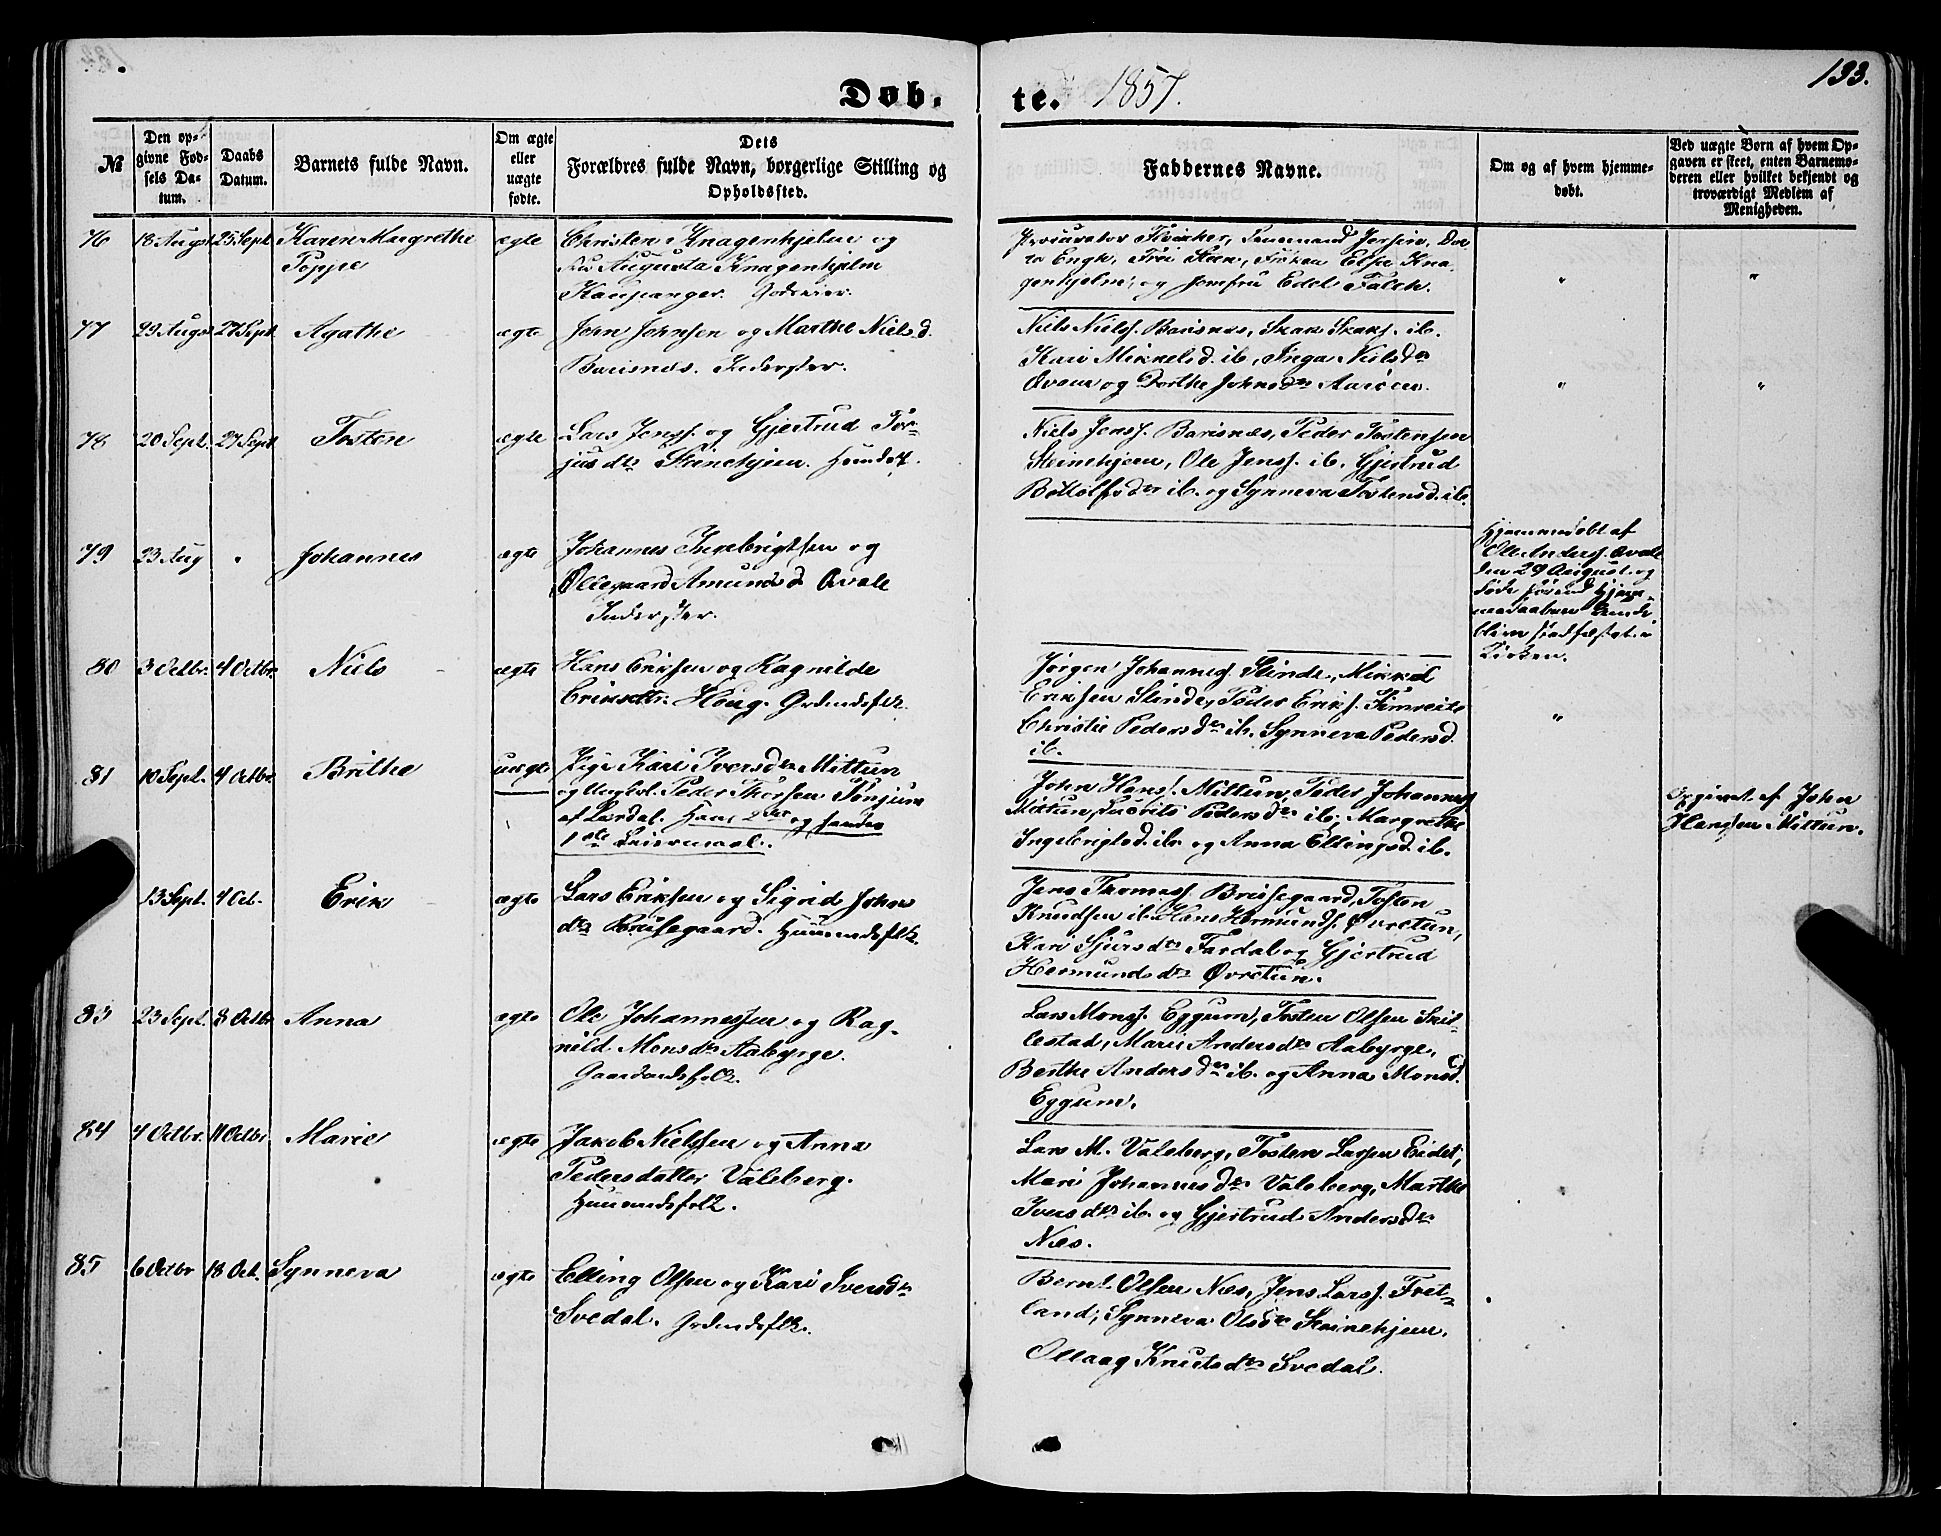 133.
Døb. te. 1857.
№
Den op-
givne Fød-
sels Da-
tum.
Daabs
Datum.
Barnets fulde Navn.
Om ægte
eller
uægte
fødte.
Dets
Forældres fulde Navn, borgerlige Stilling og
Opholdssted.
Faddernes Navne.
Om og af hvem hjemme-
døbt.
Ved uægte Børn af hvem Op-
gaven er skeet, enten Barnemo-
deren eller hvilket bekjendt og
troværdigt Medlem af
Menigheden.
76 18 Augst 25 Sept Karen Margrethe ægte Christen Knagenhjelm og
Poppe Augusta Knagenhjelm
Kaupanger. Godseier.
Procurator Jersin,
Engh, Frøken Elsa Kna-
genhjelm, og Jomfru Edel Falch.
" "
77 29 Augst 27 Sept Agathe ægte John Johnsen og Marthe Nielsd.
Barisnes. Inderster.
Niels Nielss. Barisnes, Skak Skaks. ib.
Kari Mikkelsd. ib, Inga Nielsdr
og Dorthe Johnsdr Aarøen.
" "
78 20 Sept. 27 Sept Tosten ægte Lars Jenss. og Gjertrud Tor-
jusdr Steinehjem.
Niels Jenss. Barisnes, Peder Tostensen
Steinehjem, Ole Jenss. ib. Gjertrud
Botolfsdr ib. og Synneva Tostensd. ib.
79 23 Aug " Johannes ægte Johannes Ingebrigtsen og
Ollegaard Amundsd Qvale
Inderster.
Hjemmedøbt af
Ole Anderss. Qvale
den 29 August og
døde førend Hjem-
medaaben kunde
blive stadfæstet i
Kirken.
80 3 Octbr. 4 Octbr. Niels ægte Hans Eriksen og Ragnilde
Eriksdtr. Houg. Grdmdsflk.
Jørgen Johanness. Slinde, Mikkel
Eriksen Slinde, Peder Eriks. Fimreite
Christie Pedersdr ib. Synneva Pedersd.
ib.
"
81 10 Sept. 4 Octbr. Brithe uægte Pige Kari Iversdr Mittun
og Ungkl. Peder Thorsen Tønjum
af Lærdal. Hans 2det og hendes
1ste Leiermaal.
John Hanss. Mittun, Peder Johanness
Mittun, Pedersdr ib, Margrethe
Ingebrigtsd. ib. og Anna Ellingsd. ib.
Opgivet af John
Hanssen Mittun.
13 Sept. 4 Oct. Erik ægte Lars Eriksen og Sigrid John
dtr Brissegaard. Huusmdsflk.
Jens Thomass. Brissegaard, Tosten
Knudsen ib. Hans Hermunds. Øvretun,
Kari Sjursdr Fardal og Gjertrud
Hermundsdr Øvretun.
83 23 Sept. 8 Octbr Anna ægte Ole Johannessen og Rag-
nild Monsdr Aaberge.
Gaardmdsfolk.
Lars Monss. Eggum, Tosten Olsen Skil-
lestad, Mari Andersdr Aabyrge,
Berthe Andersdr ib. og Anna Monsd.
Eggum.
84 4 Octbr. 11 Octbr. Marie ægte Jakob Nielssen og Anna
Pedersdatter Valeberg.
Huusmdsfolk.
Lars M. Valeberg, Tosten Larsen Eidet,
Mari Johannesdr Valeberg, Marthe
Iversdtr ib. og Gjertrud Andersdr
Næs.
85 6 Octbr 18 Oct. Synneva ægte Elling Olsen og Kari Iversdr
Svedal. Grdmdsflk.
Bernt Olsen Næs, Jens Larss. Fret-
land, Synneva Olsdr Steinehjem,
Ollaag Knutsdr Svedal.